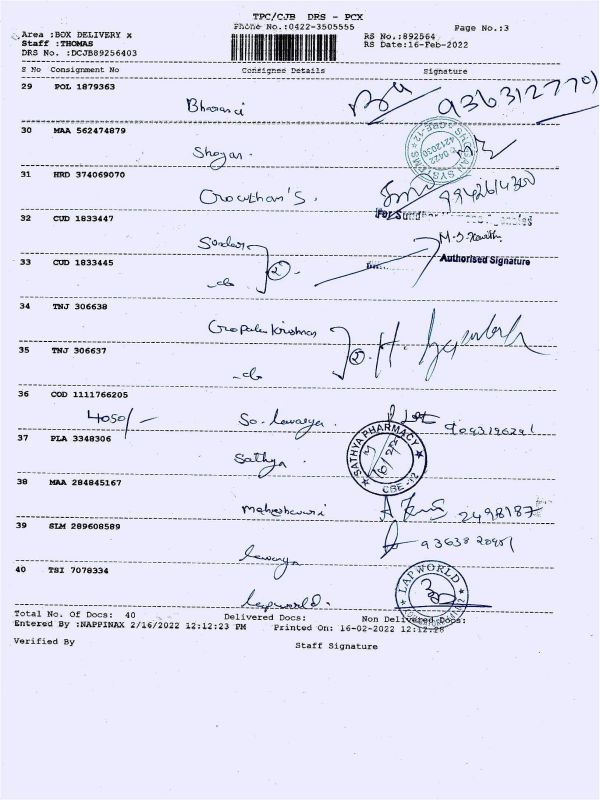 TPC/CJB DRS - PCX
Phone No.:0422-3505555
Page No.:3
Area :BOX DELIVERY x
Staff :THOMAS
DRS No. :DCJB89256403
RS No.:892564
RS Date:16-Feb-2022
S No Consignment No Consignee Details Signature
29 POL 1879363
Bharani
9363127701
30 MAA 562474879
Shogan.
31 HRD 374069070
Gowthan's.
9942614300
32 CUD 1833447
Sundar
M.S.
33 CUD 1833445
Authorised Signature
-do
2
34 TNJ 306638
Gopalakrishnan
35 TNJ 306637
-do
2
H.
36 COD 1111766205
4050/-
So. Lavanya
9093196291
37 PLA 3348306
Sathya
SATHYA PHARMACY
CBE-12
38 MAA 284845167
maheshwari
2498187
39 SLM 289608589
Lavanya
40 TSI 7078334
Lapworld.
LAPWORLD
Total No. Of Docs: 40 Delivered Docs: Non Delivered Docs:
Entered By :NAPPINAX 2/16/2022 12:12:23 PM Printed On: 16-02-2022 12:12:28
Verified By
Staff Signature